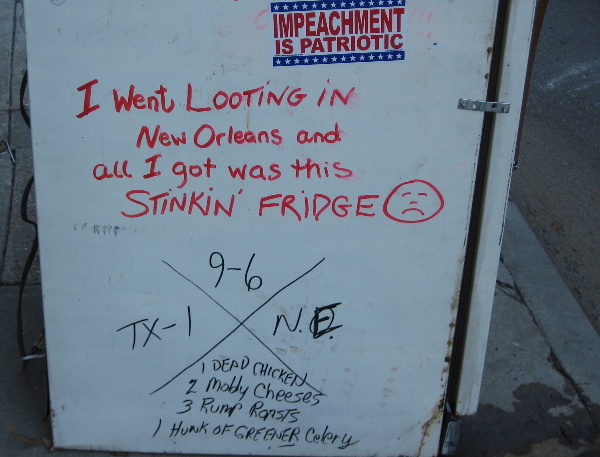 IMPEACHMENT
IS PATRIOTIC
I Went LOOTING iN
New Orleans and
all I got was this
STiNKiN' FRiDGE
9-6
TX-1 N.E.
1 DEAD CHICKEN
2 Moldy Cheeses
3 Rump Roasts
1 HUNK OF GREENER Celery